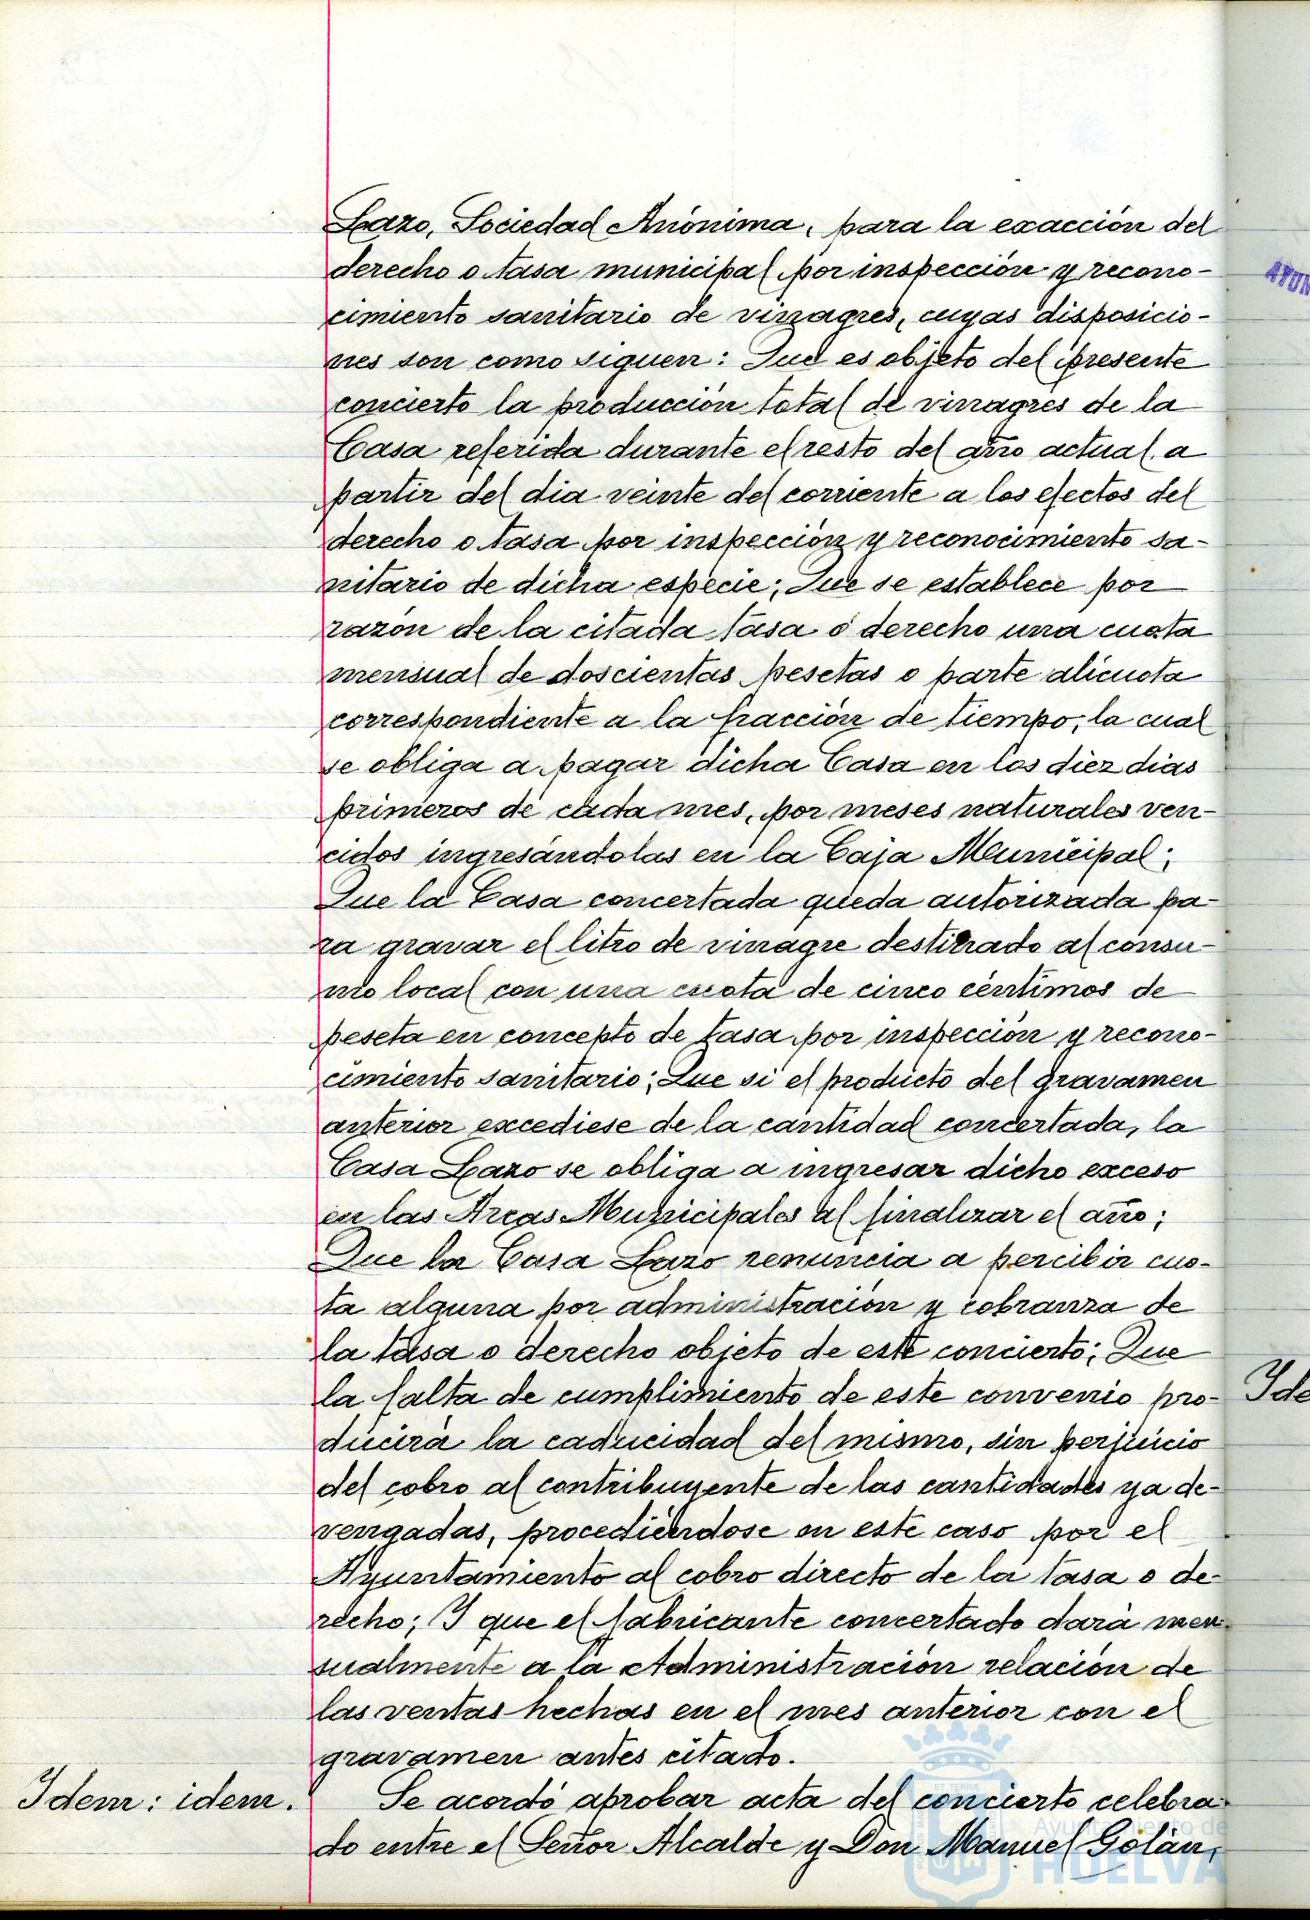 Lazo, Sociedad Anónima, para la exacción del
derecho o tasa municipal por inspección y recono-
cimiento sanitario de vinagres, cuyas disposicio-
nes son como siguen: Que es objeto del presente
concierto la producción total de vinagres de la
Casa referida durante el resto del año actual a
partir del dia veinte del corriente a los efectos del
derecho o tasa por inspección y reconocimiento sa-
nitario de dicha especie; Que se establece por
razón de la citada tasa o derecho una cuota
mensual de doscientas pesetas o parte alicuota
correspondiente a la fracción de tiempo, la cual
se obliga a pagar dicha Casa en los diez dias
primeros de cada mes, por meses naturales ven-
cidos ingresándolas en la Caja Municipal;
Que la Casa concertada queda autorizada pa-
ra gravar el litro de vinagre destinado al consu-
mo local con una cuota de cinco céntimos de
peseta en concepto de tasa por inspección y recono-
cimiento sanitario; Que si el producto del gravamen
anterior excediese de la cantidad concertada, la
Casa Lazo se obliga a ingresar dicho exceso
en las Arcas Municipales al finalizar el año;
Que la Casa Lazo renuncia a percibir cuo-
ta alguna por administración y cobranza de
la tasa o derecho objeto de este concierto; Que
la falta de cumplimiento de este convenio pro-
ducirá la caducidad del mismo, sin perjuicio
del cobro al contribuyente de las cantidades ya de-
vengadas, procediéndose en este caso por el
Ayuntamiento al cobro directo de la tasa o de-
recho; Y que el fabricante concertado dará men-
sualmente a la Administración relación de
las ventas hechas en el mes anterior con el
gravamen antes citado.
Idem: idem.
Se acordó aprobar acta del concierto celebra-
do entre el Señor Alcalde y Don Manuel Golán,
AYUN
Ide
Ayuntamiento de
HUELVA